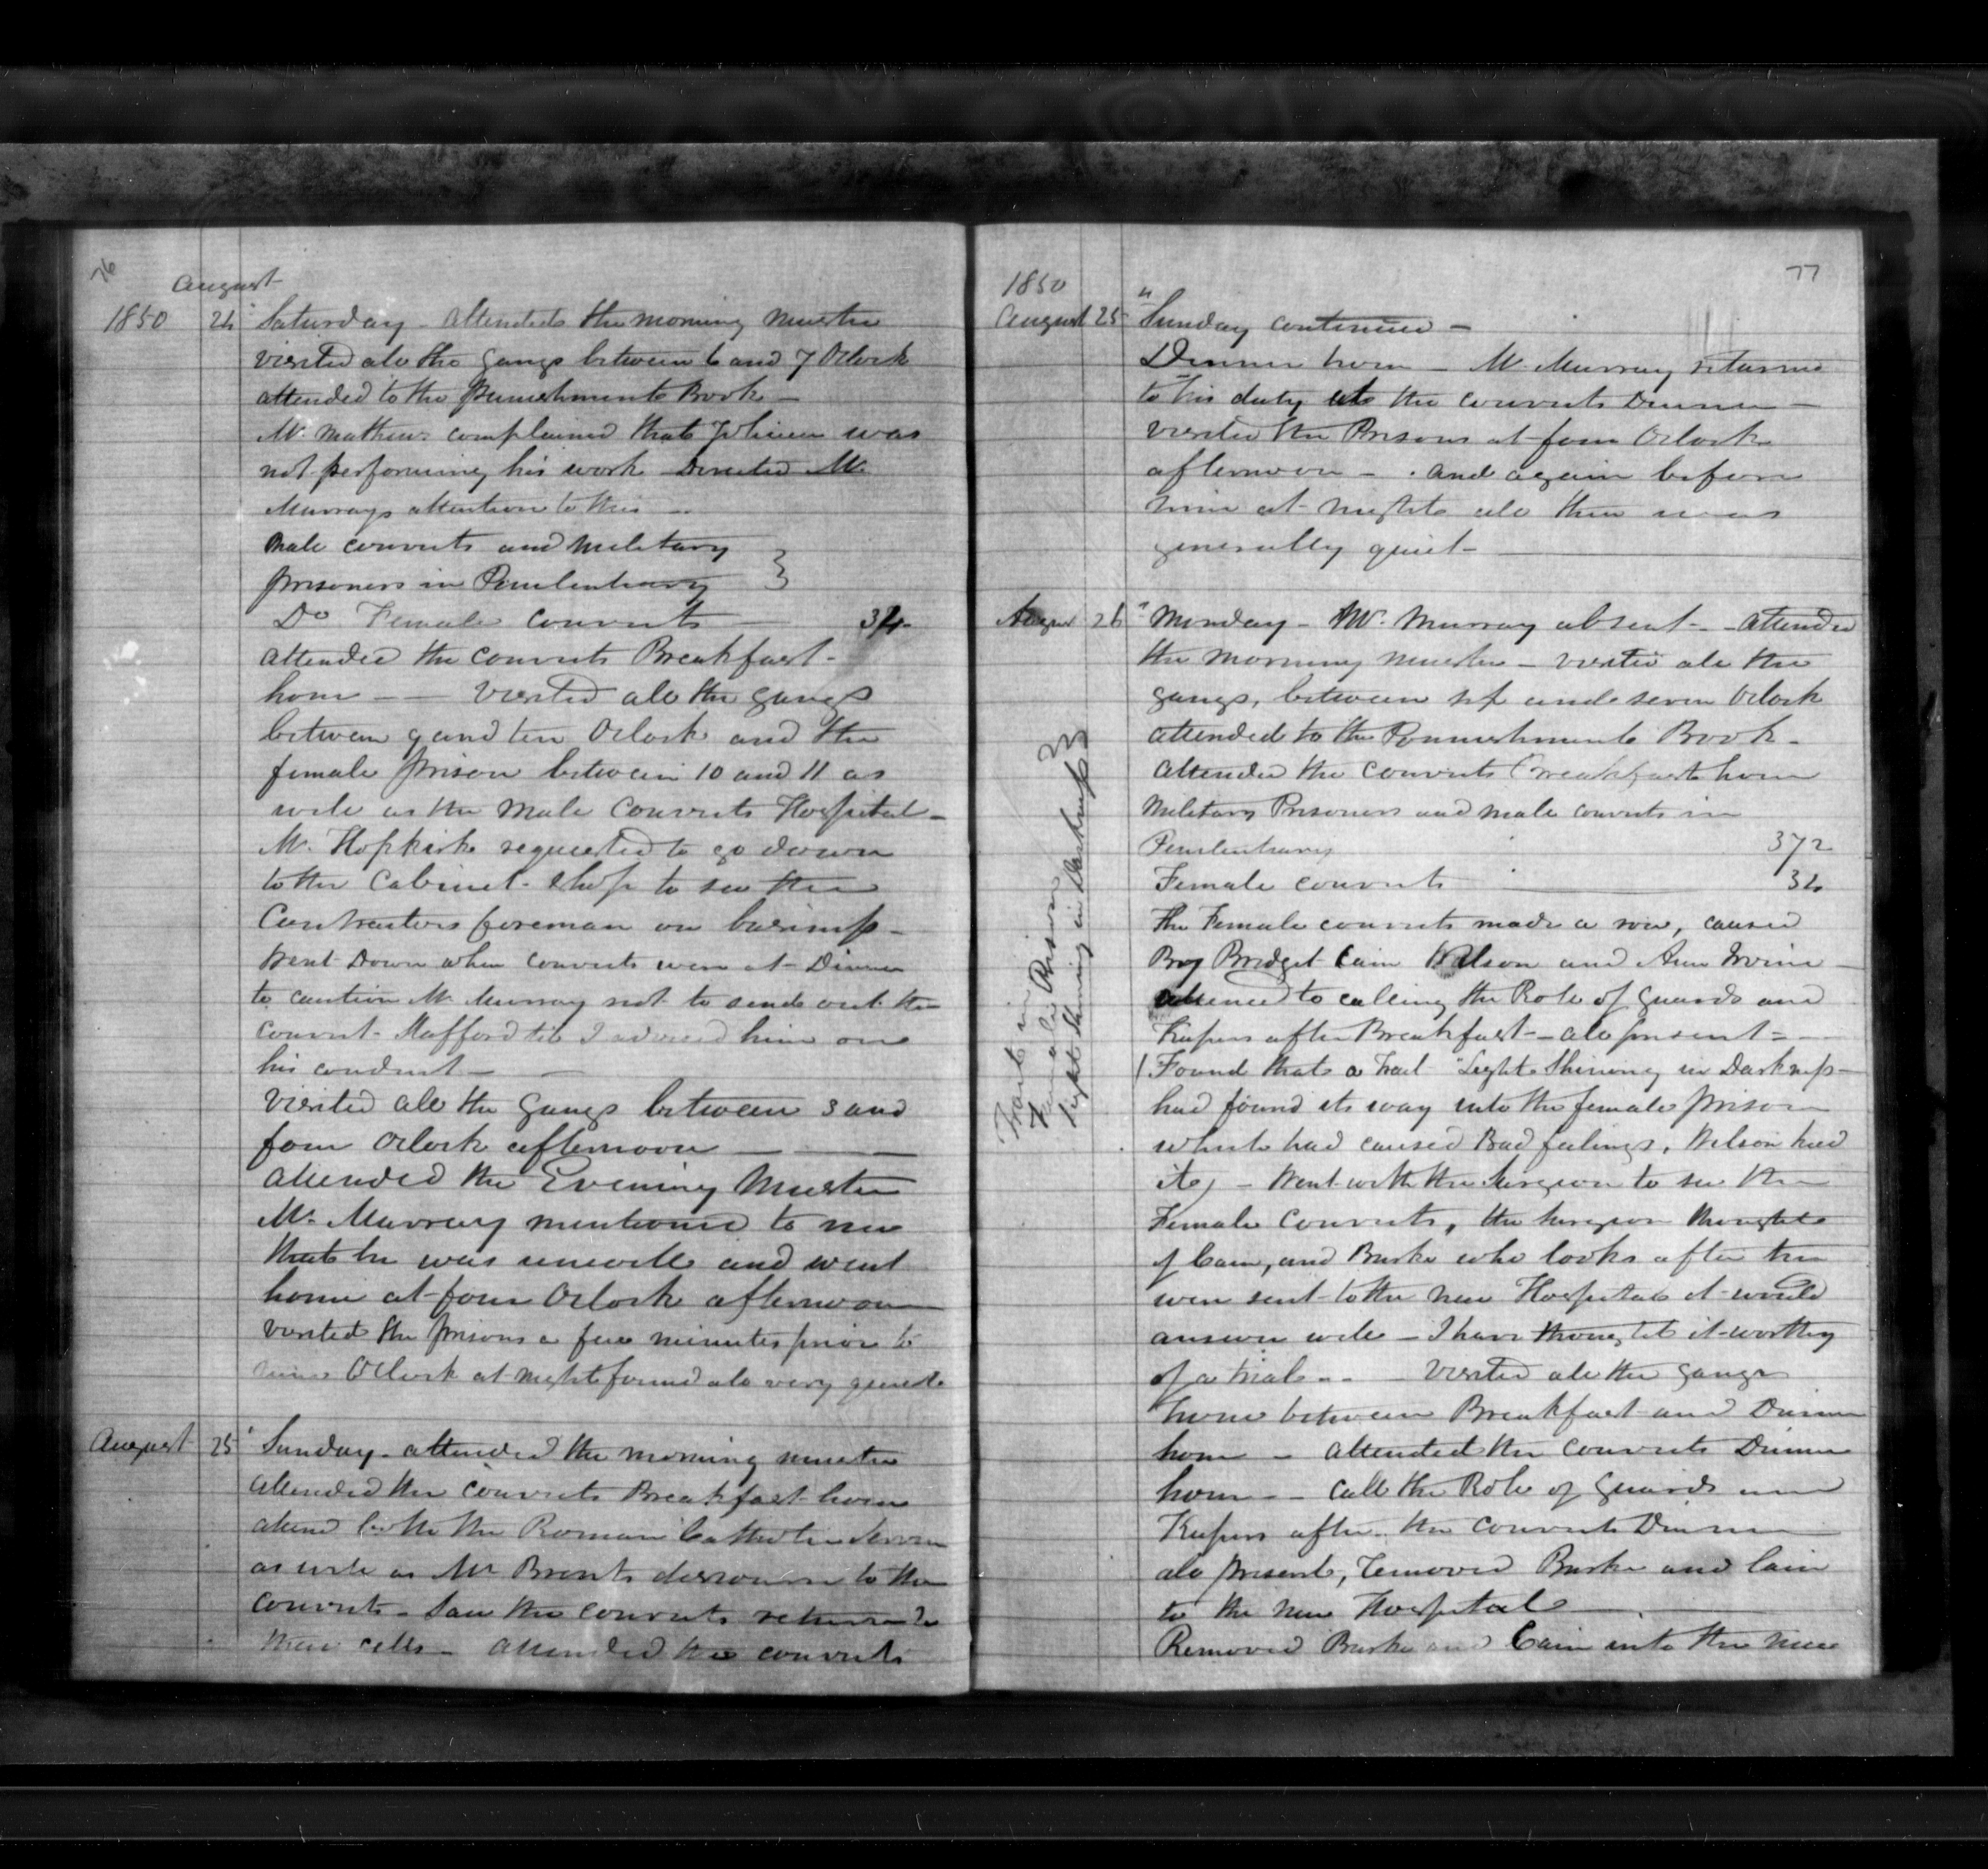 76
August
1850 24 " Saturday - Attended the morning Muster
visited all the gangs between 6 and 7 Oclock
attended to the Punishment Book -
Mr. Mathews complained that was
not performing his work Directed Mr.
Murrays attention to this -
Male convicts and Military
prisoners in Penitentiary }
Do Female convicts - 34
Attended the convicts Breakfast -
hour - - Visited all the gangs
between 9 and ten Oclock and the
female prison between 10 and 11 as
well as the Male Convicts Hospital -
Mr. Hopkirk requested to go down
to the Cabinet - Shop to see the
Contractors foreman on business -
Went Down when convicts were at Dinner
to caution Mr. Murray not to send out the
convict Stafford till I advised him on
his conduct -
Visited all the Gangs between 3 and
four Oclock afternoon -
Attended the Evening Muster
Mr. Murray mentioned to me
that he was unwell and went
home at four Oclock afternoon
Visited the prisons a few minutes prior to
nine Oclock at night found all very quiet
August 25 " Sunday - attended the morning muster
attended the convicts Breakfast hour
attend both the Roman Catholic Service
as well as Mr discourse to the
convicts - Saw the convicts return to
their cells - attended the convicts
77
1850
August 25 " Sunday continued -
Dinner hour - Mr. Murray returned
to his duty at the convicts Dinner -
visited the Prisons at four Oclock
afternoon - and again before
nine at night all then was
generally quiet -
August 26 " Monday - Mr. Murray absent - - attended
the morning muster - visited all the
gangs, between six and seven Oclock
attended to the Punishment Book -
Attended the convicts Breakfast hour
Military Prisoners and male convicts in
Penitentiary 372
Female convicts 34
The Female convicts made a row, caused
By Bridget Cain Wilson and Ann Irvine -
attened to calling the Role of Guards and
Keepers after Breakfast - all present -
Tract in
Female Prison
light shining in Darkness
Found that a Tract "Light Shining in Darkness -
had found its way into the female prison
which had caused Bad feelings, Wilson had
it, - Went with the Surgeon to see the
Female Convicts, the surgeon thought
if Cain, and Burke who looks after her
were sent to the new Hospital it would
answer well - I have thought it worthy
of a trial - - Visited all the gangs
hour between Breakfast and Dinner
hour - attended the convicts Dinner
hour - - Call the Role of Guards and
Keepers after the convicts Dinner
all present, Removed Burke and Cain
to the new Hospital
Removed Burke and Cain into the new